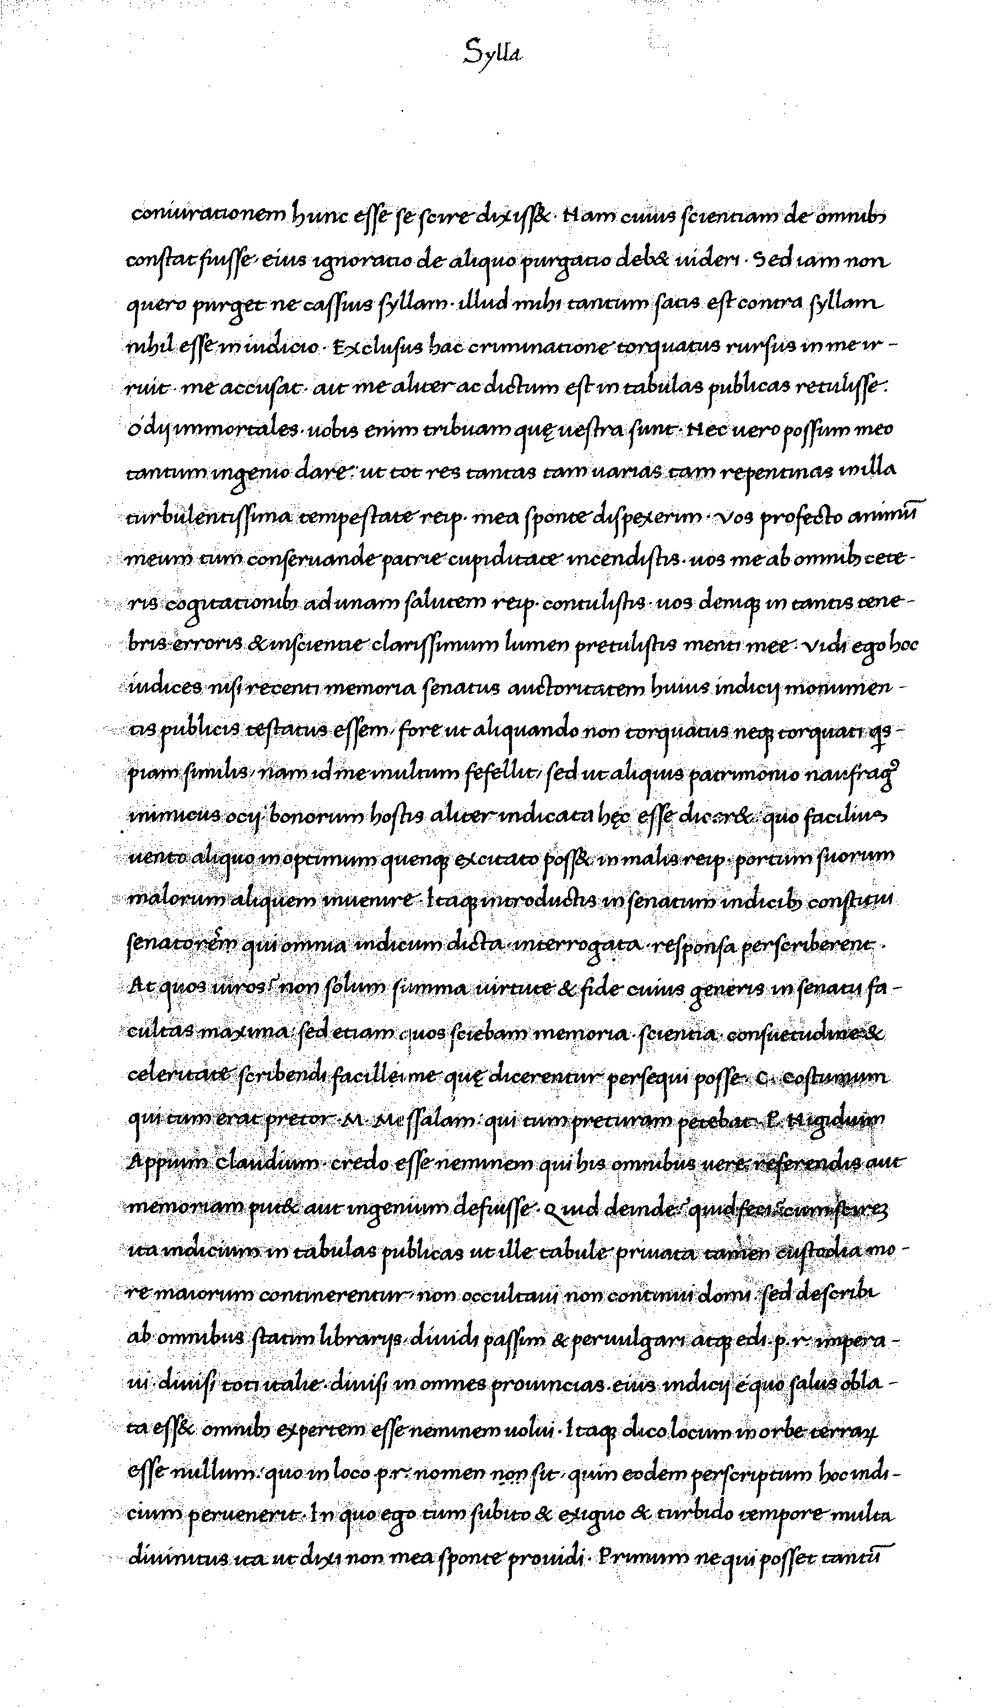 Sylla
coniurationem hunc esse se scire dixiss&. Nam cuius scientiam de omnib;
constat fuisse, eius ignoratio de aliquo purgatio deb& uideri. Sed iam non
quero purget ne cassius syllam. illud mihi tantum satis est contra syllam
nihil esse in iudicio. Exclusus hac criminatione torquatus rursus in me ir-
ruit. me accusat. ait me aliter ac dictum est in tabulas publicas retulisse.
O dij immortales. uobis enim tribuam quę uestra sunt. Nec uero possum meo
tantum ingenio dare. ut tot res tantas tam uarias tam repentinas in illa
turbulentissima tempestate reip. mea sponte dispexerim. Vos profecto animū
meum tum conseruande patrie cupiditate incendistis. uos me ab omnib; cete-
ris cogitationib; ad unam salutem reip. contulistis. uos deniq; in tantis tene-
bris erroris & inscientie clarissimum lumen pretulistis menti mee. Vidi ego hoc
iudices nisi recenti memoria senatus auctoritatem huius indicij monumen-
tis publicis testatus essem, fore ut aliquando non torquatus neq; torquati qs-
piam similis, nam id me multum fefellit, sed ut aliquis patrimonio naufragꝰ
inimicus ocij. bonorum hostis aliter indicata hęc esse dicer&. quo facilius
uento aliquo in optimum quenq; excitato poss& in malis reip. portum suorum
malorum aliquem inuenire. Itaq; introductis in senatum indicib; constitui
senatorem qui omnia indicum dicta. interrogata. responsa perscriberent.
At quos uiros? non solum summa uirtute & fide cuius generis in senatu fa-
cultas maxima. sed etiam quos sciebam memoria. scientia. consuetudine &
celeritate scribendi facilleime quę dicerentur persequi posse. C. Costumum
qui tum erat pretor. M. Messalam. qui tum preturam petebat. P. Nigidium
Appium claudium. credo esse neminem qui his omnibus uere referendis aut
memoriam put& aut ingenium defuisse. Quid deinde? quid feci? cum scire
ita indicium in tabulas publicas ut ille tabule priuata tamen custodia mo-
re maiorum continerentur. non occultaui non continui domi. sed describi
ab omnibus statim librarijs. diuidi passim & peruulgari atq; edi. p. r. impera-
ui. diuisi toti italie. diuisi in omnes prouincias. eius indicij e quo salus obla-
ta ess& omnib; expertem esse neminem uolui. Itaq; dico locum in orbe terraꝝ
esse nullum. quo in loco p.r. nomen non sit, quin eodem perscriptum hoc indi-
cium peruenerit. In quo ego tum subito & exiguo & turbido tempore multa
diuinitus ita ut dixi non mea sponte prouidi. Primum ne qui posset tantū